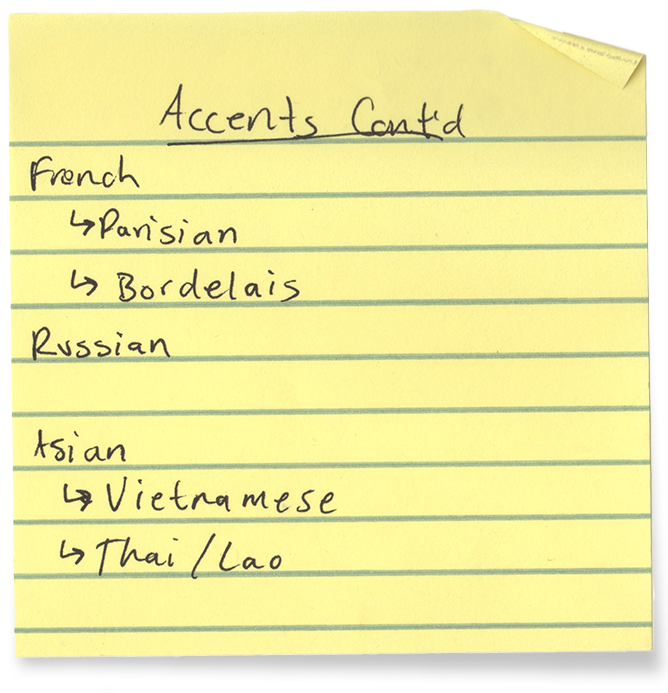 Accents Cont'd
French
↳Parisian
↳ Bordelais
Russian
Asian
↳ Vietnamese
↳ Thai/Lao